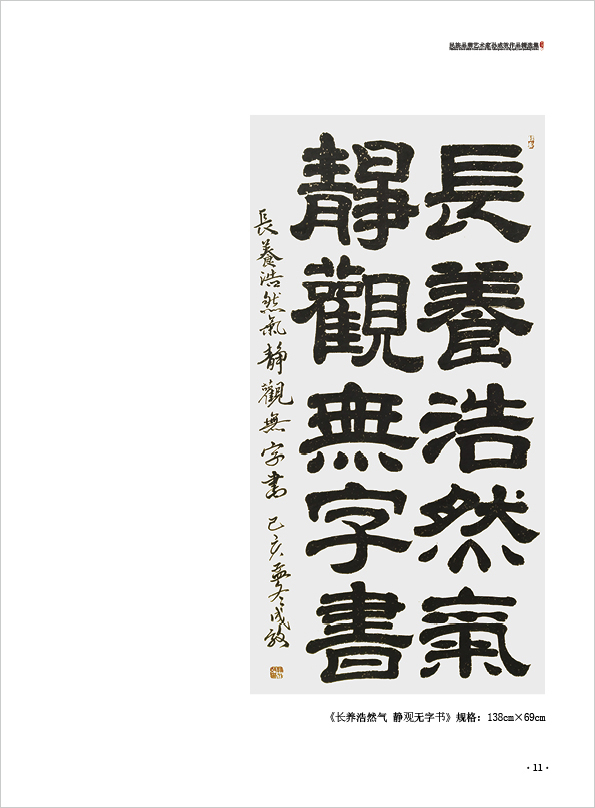 長養浩然氣
靜觀無字書
長養浩然氣靜觀無字書 己亥孟冬成效
《长养浩然气 静观无字书》规格：138cm×69cm
·11·